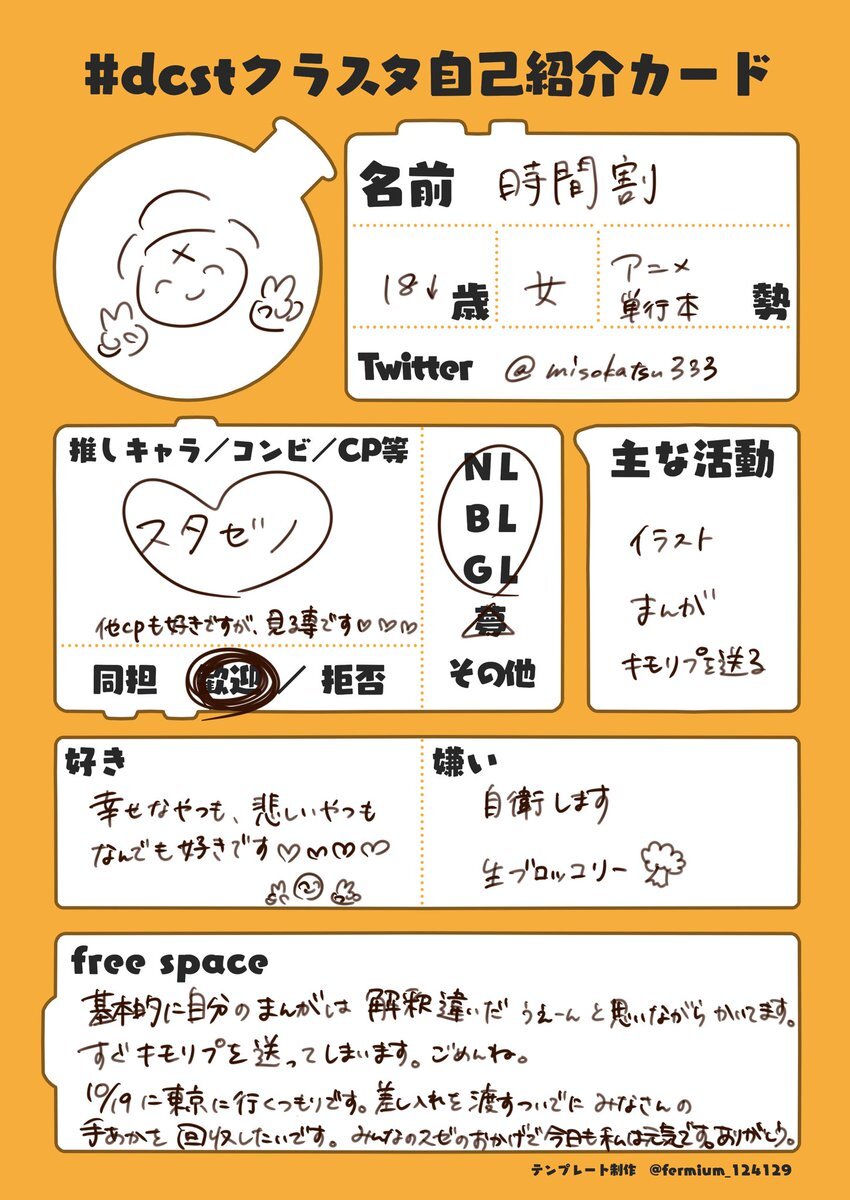 #dcstクラスタ自己紹介カード
名前 時間割
18↓歳
女
アニメ
単行本 勢
Twitter @misokatsu333
推しキャラ／コンビ／CP等
スタゼノ
他cpも好きですが、見る専です♡♡♡
同担 歓迎／拒否
NL
BL
GL
夢
その他
主な活動
イラスト
まんが
キモリプを送る
好き
幸せなやつも、悲しいやつも
なんでも好きです♡♡♡♡
嫌い
自衛します
生ブロッコリー
free space
基本的に自分のまんがは解釈違いだ うえーんと思いながらかいてます。
すぐキモリプを送ってしまいます。ごめんね。
10/19に東京に行くつもりです。差し入れを渡すついでにみなさんの
手あかを回収したいです。みんなのスゼのおかげで今日も私は元気です。ありがとう。
テンプレート制作 @fermium_124129